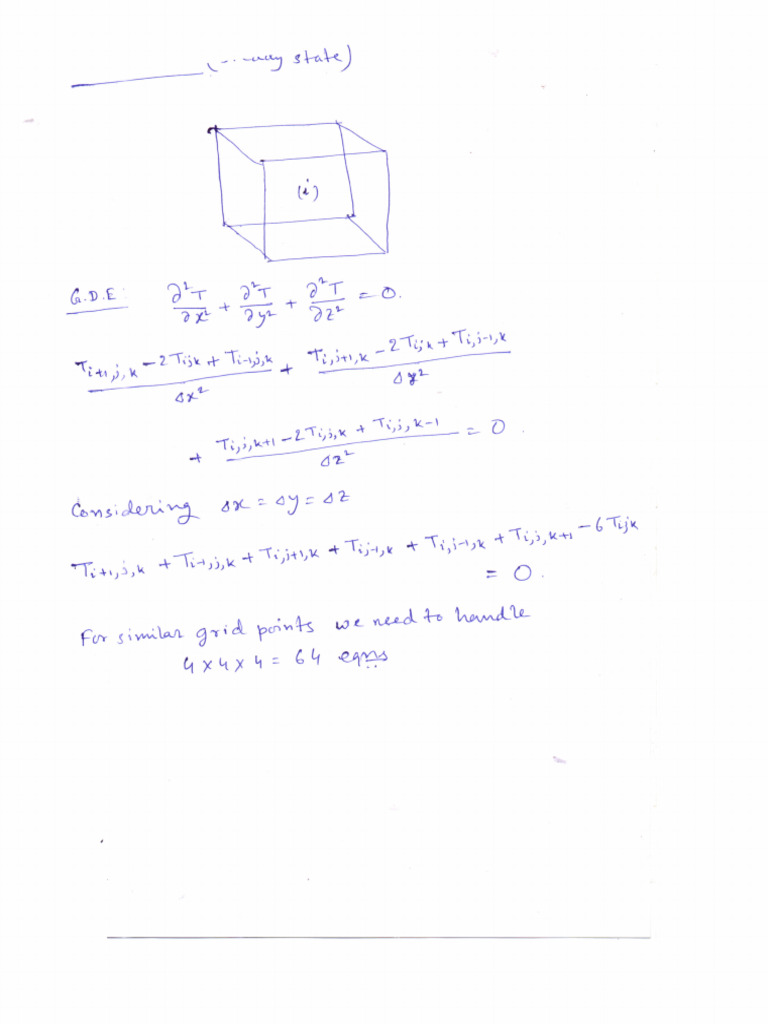 state)
(i)
G.D.E: ∂²T/∂x² + ∂²T/∂y² + ∂²T/∂z² = 0.
(T_{i+1,j,k} − 2T_{ijk} + T_{i−1,j,k})/Δx² + (T_{i,j+1,k} − 2T_{ijk} + T_{i,j−1,k})/Δy²
+ (T_{i,j,k+1} − 2T_{i,j,k} + T_{i,j,k−1})/Δz² = 0.
Considering Δx = Δy = Δz
T_{i+1,j,k} + T_{i−1,j,k} + T_{i,j+1,k} + T_{i,j−1,k} + T_{i,j−1,k} + T_{i,j,k+1} − 6T_{ijk}
= 0.
For similar grid points we need to handle
4 x 4 x 4 = 64 eqns